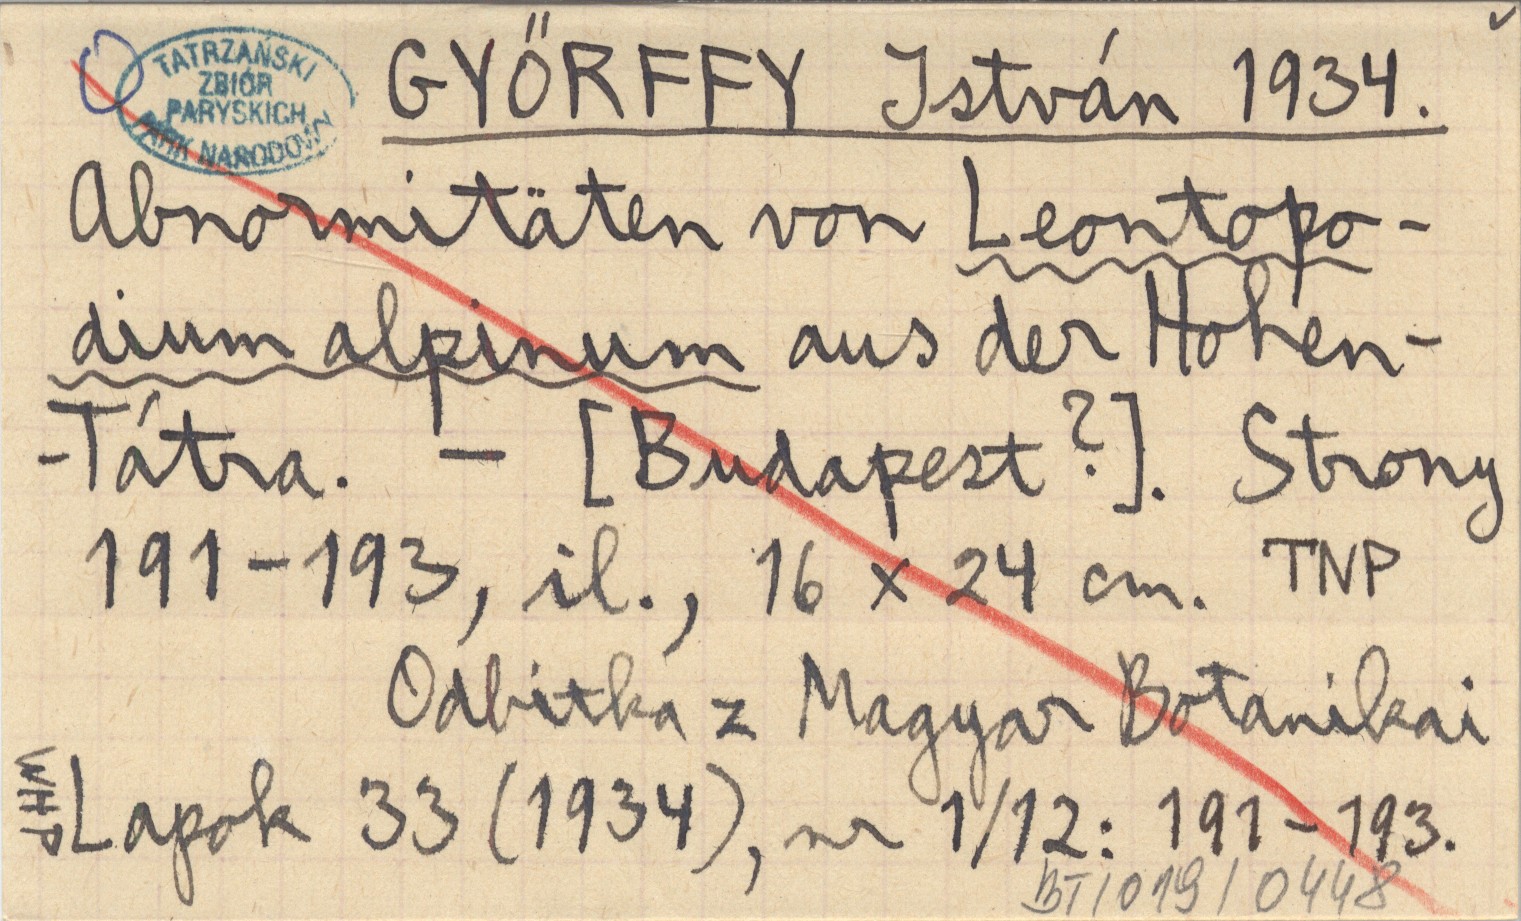 TATRZAŃSKI
ZBIÓR
PARYSKICH
PARK NARODOWY
GYŐRFFY István 1934.
Abnormitäten von Leontopo-
dium alpinum aus der Hohen-
-Tátra. — [Budapest?]. Strony
191-193, il., 16 x 24 cm. TNP
Odbitka z Magyar Botanikai
Lapok 33 (1934), nr 1/12: 191-193.
WHP
BT/019/0448